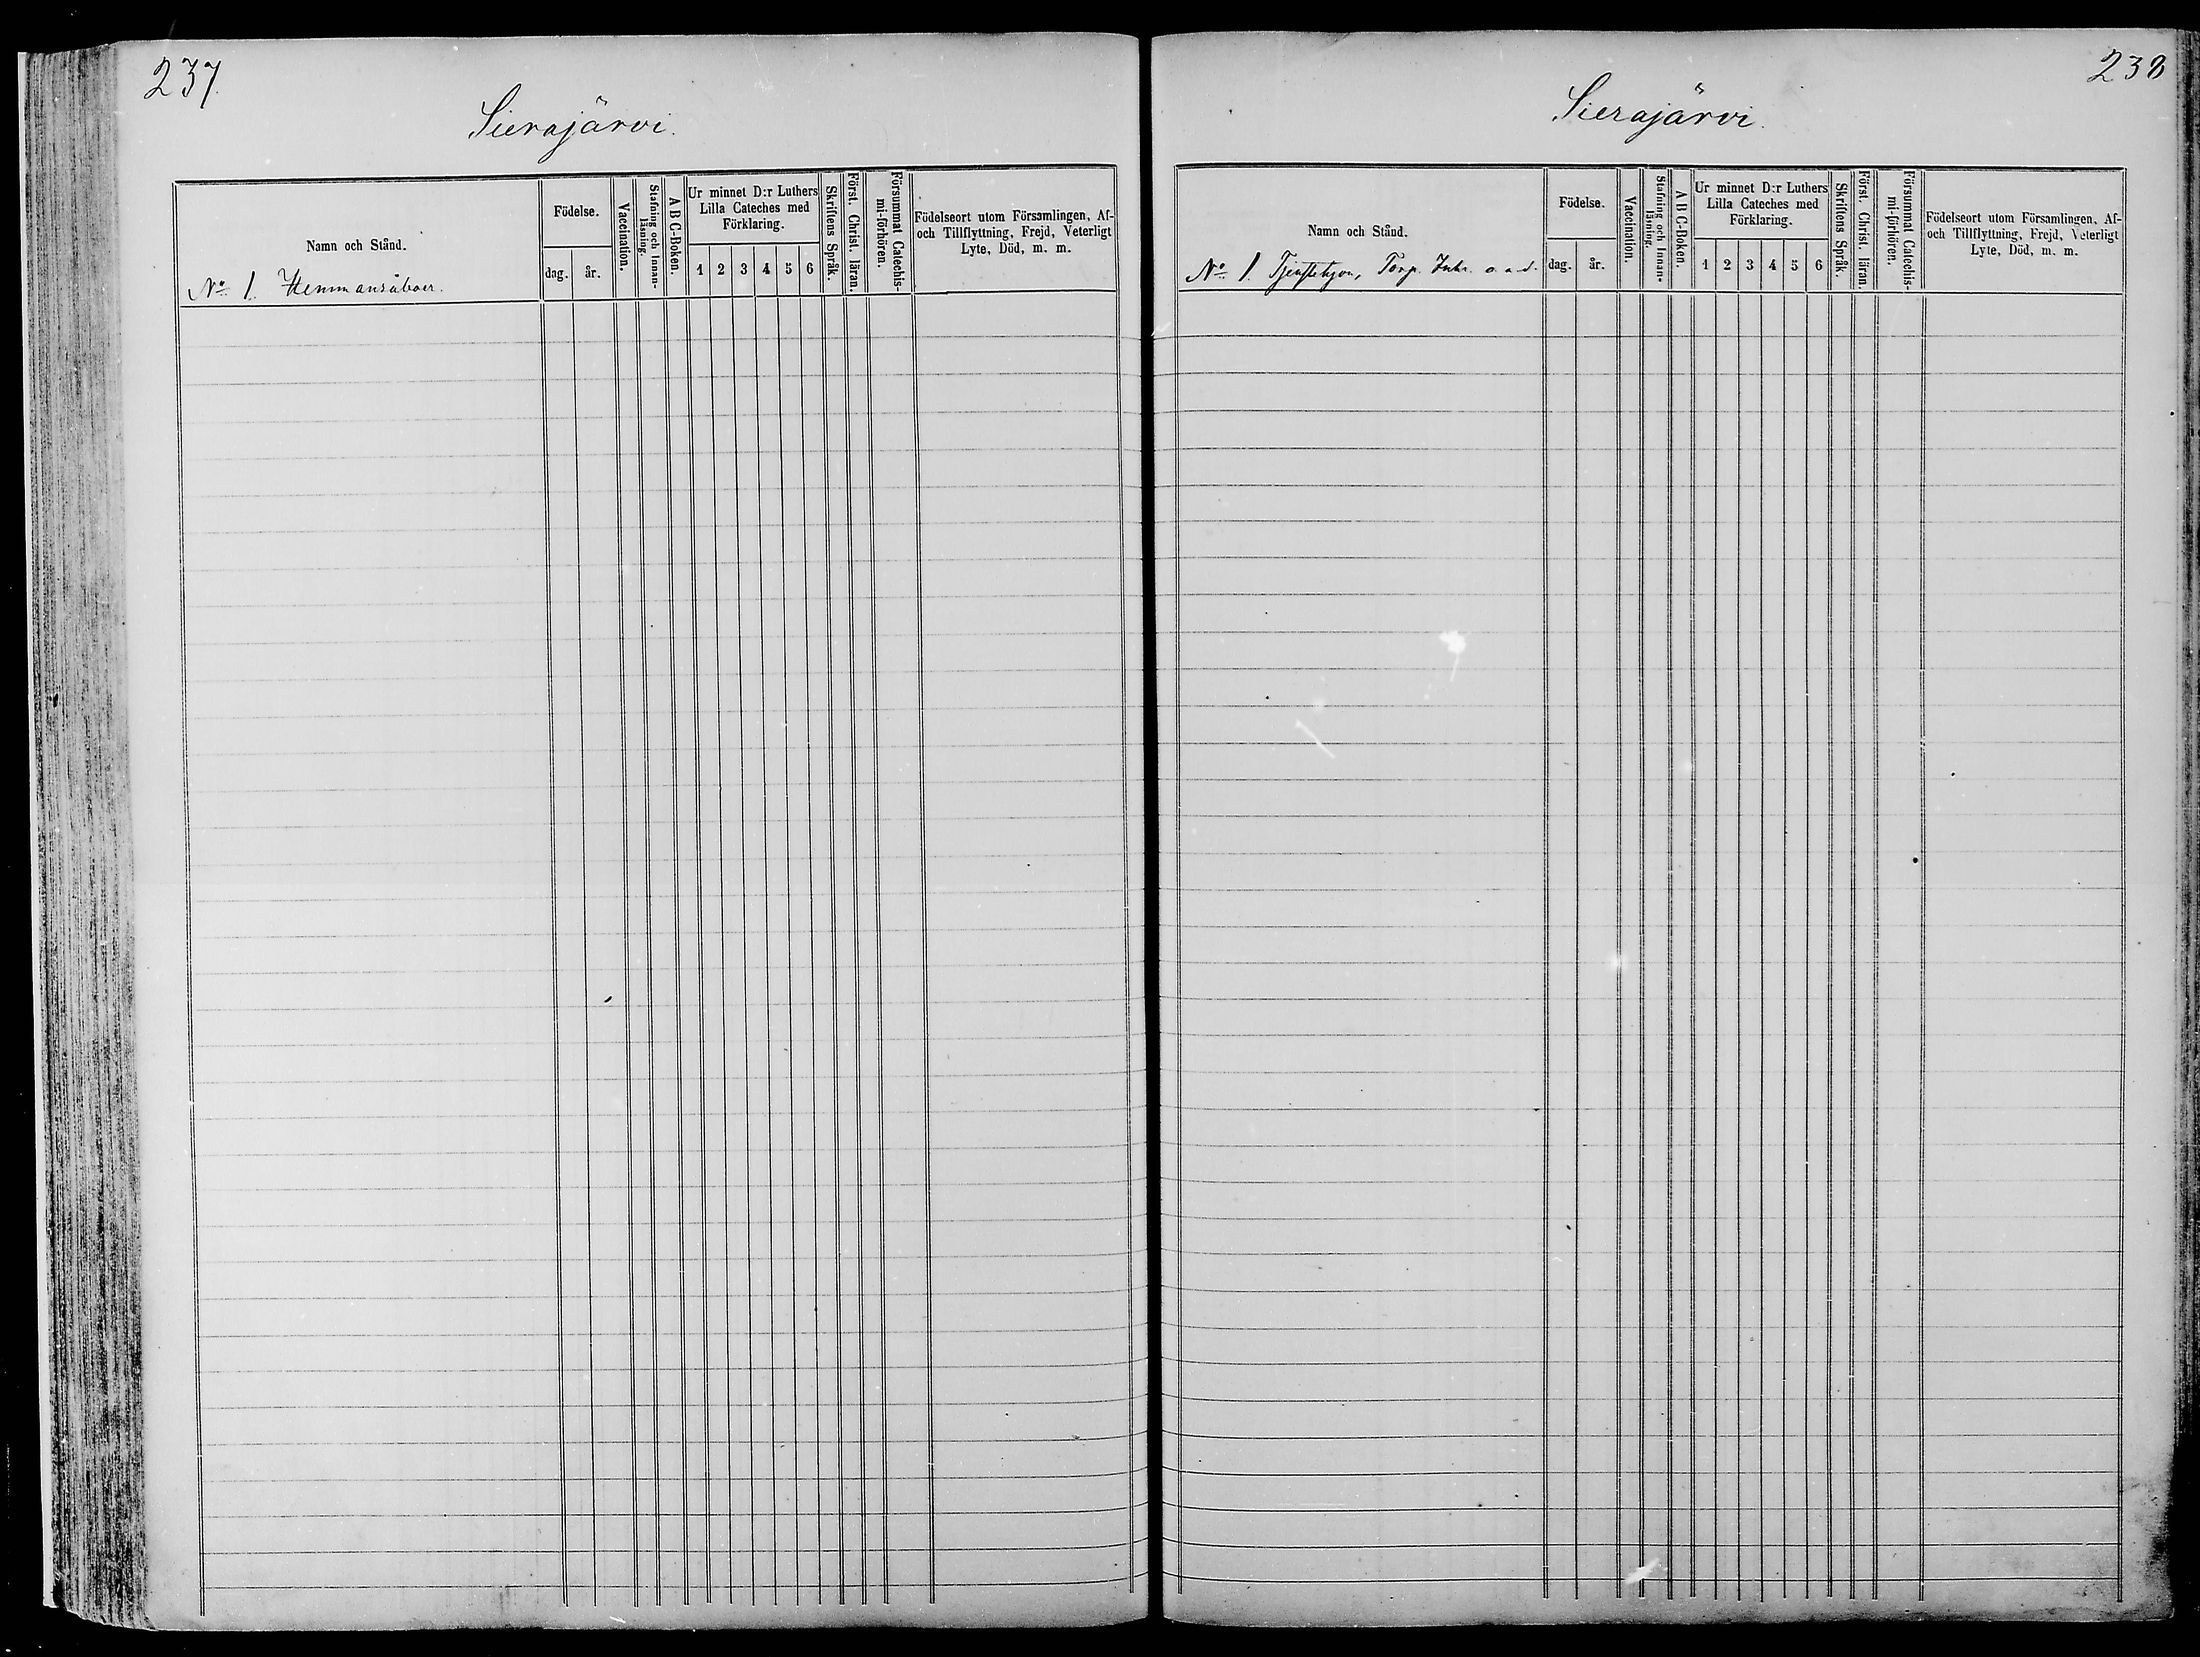 237.
Sierajärvi.
Namn och Stånd.
No 1. Hemmansåboer.
Födelse.
dag.
år.
Vaccination.
Stafning och Innan-
läsning.
A B C-Boken.
Ur minnet D:r Luthers
Lilla Cateches med
Förklaring.
1 2 3 4 5 6
Skriftens Språk.
Först. Christ. läran.
Försummat Catechis-
mi-förhören.
Födelseort utom Församlingen, Af-
och Tillflyttning, Frejd, Veterligt
Lyte, Död, m. m.
238
Sierajärvi.
Namn och Stånd.
No 1. Tjenstehjon, Torp. Inh. o. a. d.
Födelse.
dag.
år.
Vaccination.
Stafning och Innan-
läsning.
A B C-Boken.
Ur minnet D:r Luthers
Lilla Cateches med
Förklaring.
1 2 3 4 5 6
Skriftens Språk.
Först. Christ. läran.
Försummat Catechis-
mi-förhören.
Födelseort utom Församlingen, Af-
och Tillflyttning, Frejd, Veterligt
Lyte, Död, m. m.